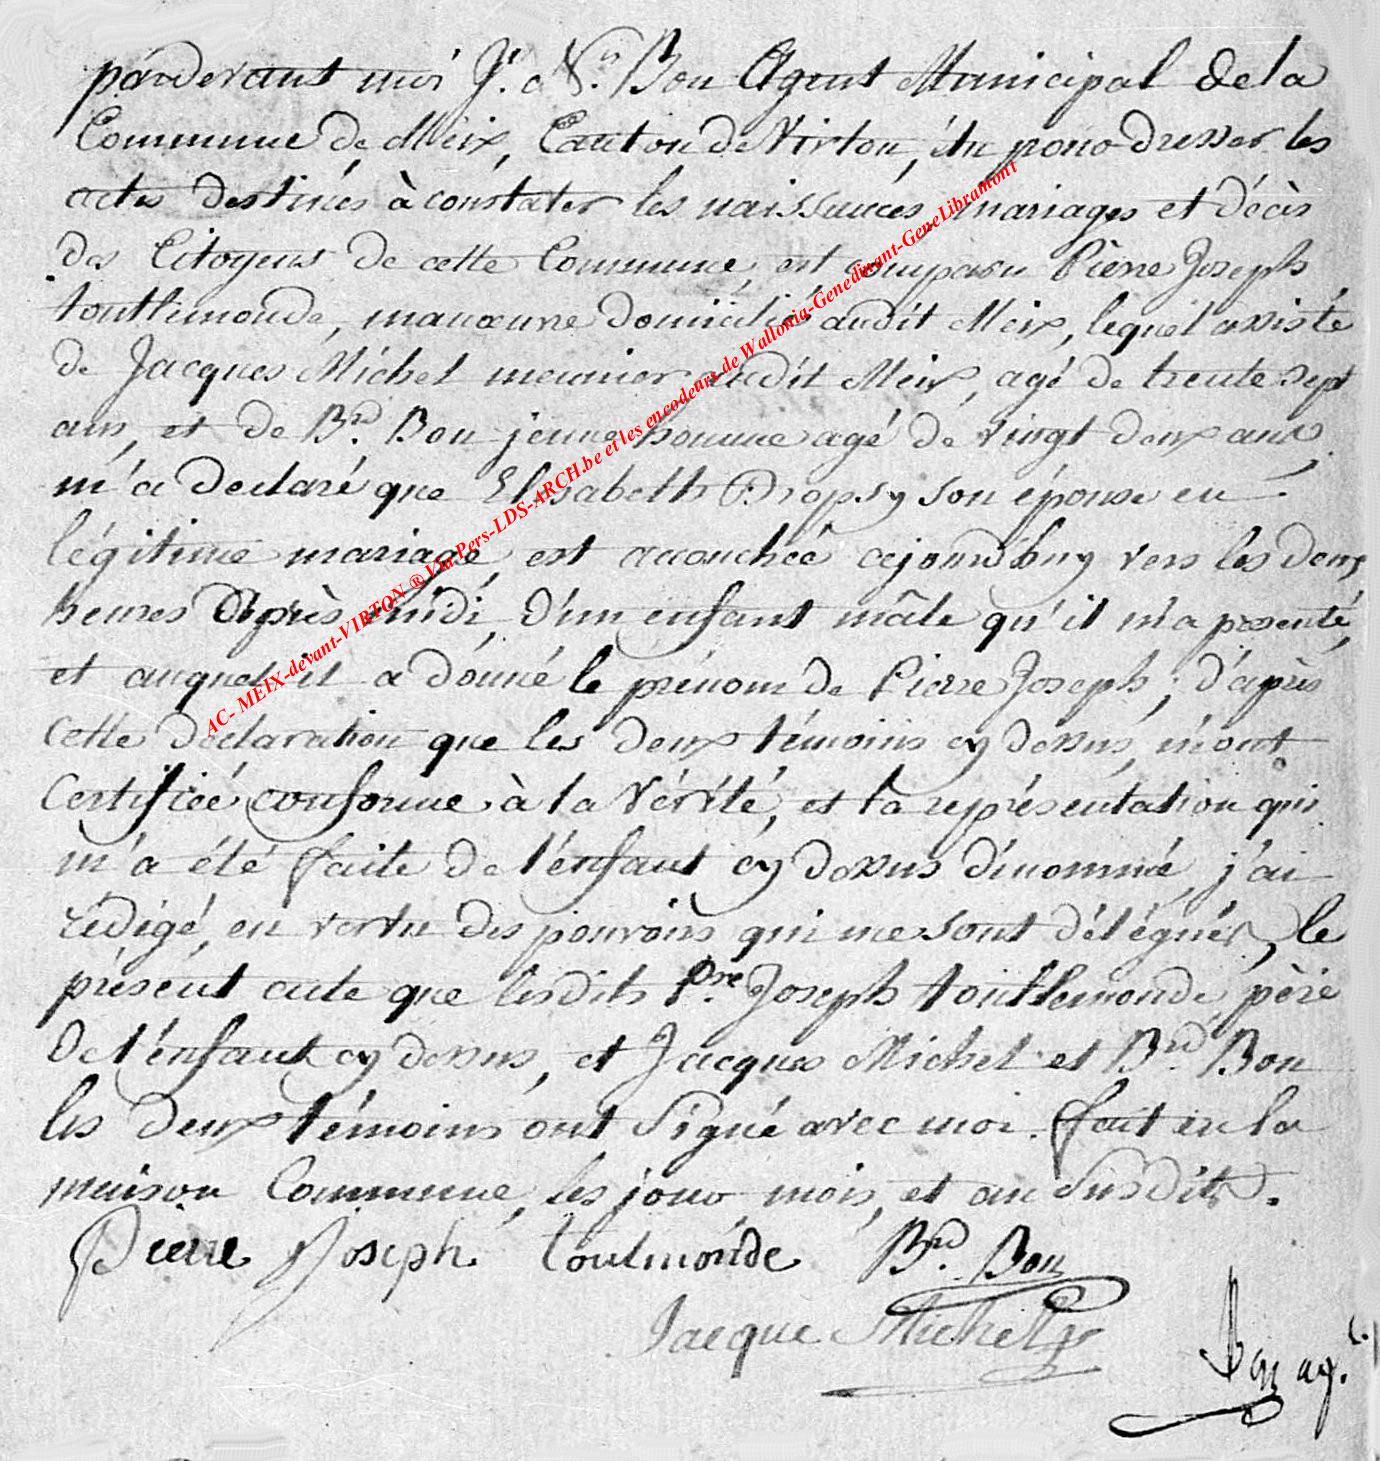 pardevant moi J. N. Bon Agent Municipal de la
Commune de Meix, Canton de Virton, élu pour dresser les
actes destinés à constater les naissances, mariages et décès
des Citoyens de cette Commune, est comparu Pière Joseph
toutlemonde, manœuvre domicilié audit Meix, lequel assisté
de Jacques Michel meunier audit Meix, agé de trente sept
ans, et de Brd. Bon jeune homme agé de vingt deux ans,
m'a declaré que Elisabeth Dropsy son épouse en
légitime mariage, est accouchée aujourdhuy vers les deux
heures après midi, d'un enfant mâle qu'il m'a presenté,
et auquel il a donné le prénom de Pierre Joseph; d'après
cette declaration que les deux témoins cy dessus, m'ont
Certifiée conforme à la Vérité, et la représentation qui
m'a été faite de l'enfant cy dessus dénommé, j'ai
rédigé, en vertu des pouvoirs qui me sont délégués, le
présent acte que lesdits Pre. Joseph toutlemonde, père
de l'enfant cy dessus, et Jacques Michel et Brd. Bon
les deux témoins ont Signé avec moi. fait en la
maison Commune, les jour, mois, et an Susdits.
Pierre Joseph toulmonde Brd. Bon
Jacque Michel
Bon ag.
AC- MEIX-devant-VIRTON ® Via Pers-LDS-ARCH.be et les encodeurs de Wallonia-Genedinant-GeneLibramont